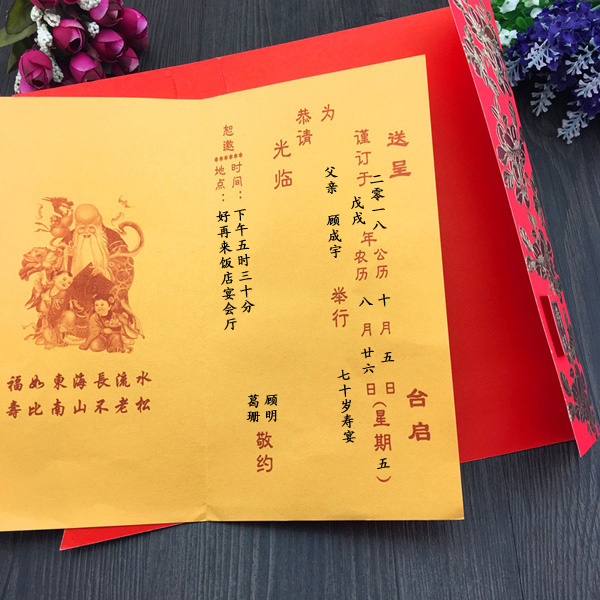 送呈 台启
谨订于 二零一八 戊戌 年 公历 十月五 农历 八月廿六 日(星期五)
为 父亲 顾成宇 举行 七十岁寿宴
恭请
光临
顾明
葛珊
敬约
恕邀
时间：下午五时三十分
地点：好再来饭店宴会厅
福如東海長流水
壽比南山不老松